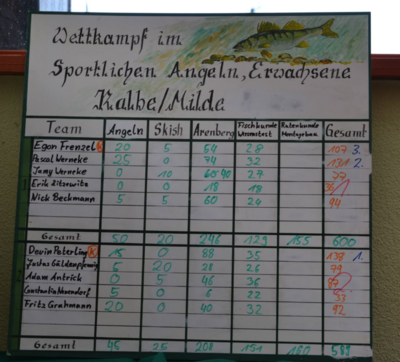 Wettkampf im
Sportlichen Angeln, Erwachsene
Kalbe/Milde
Team Angeln Skish Arenberg Fischkunde Gesamt
Egon Frenzel 20 5 54 28 107 3.
Pascal Werneke 25 0 74 32 131 2.
Werneke 0 10 27 77
Erik 0 0 18 18
Nick Beckmann 5 5 60 24 94
Gesamt 50 20 246 129 155 600
15 0 88 35 1.
5 20 28 26 79
Adam Antrick 0 5 46 36 87
5 0 6 22 33
Fritz Grahmann 20 0 40 32 92
Gesamt 45 25 208 151 160 589